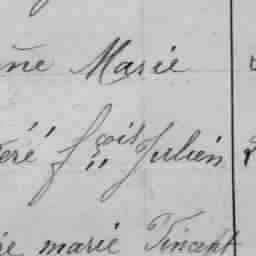 ne Marie
ré fçois Julien
ie marie Vincent